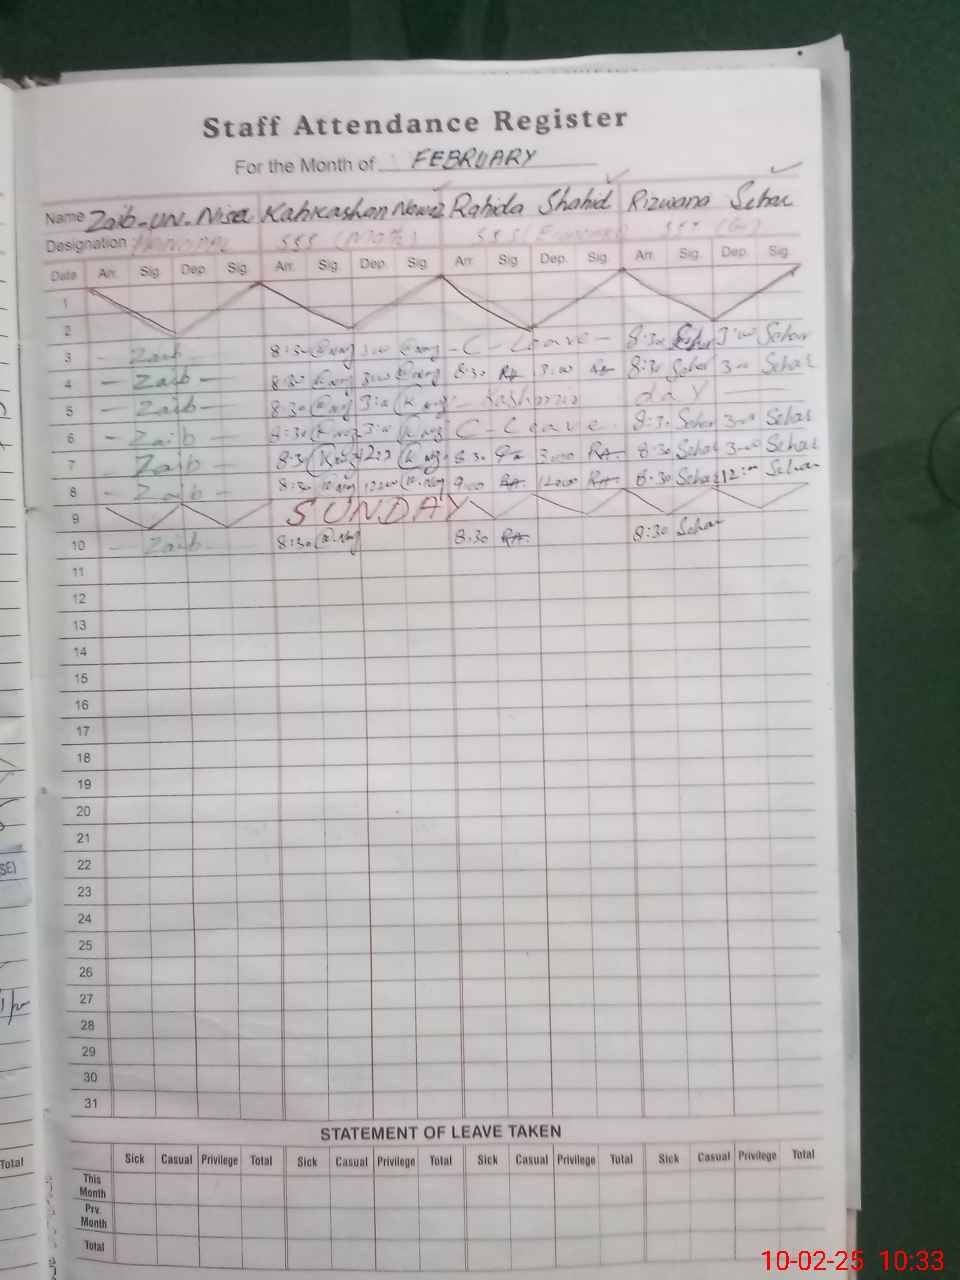 Staff Attendance Register
For the Month of FEBRUARY
Name Zaib-un-Nisa Kahkashan Nawaz Rahida Shahid Rizwana Sehar
Designation SSS (Math) SSS
Date Arr. Sig. Dep. Sig. Arr. Sig. Dep. Sig. Arr. Sig. Dep. Sig. Arr. Sig. Dep. Sig.
1
2
3 - Zaib - 8:30 3:00 - C - Leave - 8:30 Sehar 3:00 Sehar
4 - Zaib - 8:30 3:00 8:30 RA 3:00 RA 8:30 Sehar 3:00 Sehar
5 - Zaib - 8:30 3:00 - Kashmir day
6 - Zaib - 8:30 3:00 C - Leave. 8:30 Sehar 3:00 Sehar
7 - Zaib - 8:30 8:30 RA 3:00 RA. 8:30 Sehar 3:00 Sehar
8 - Zaib - 8:30 12:00 9:00 RA. 12:00 RA. 8:30 Sehar 12:00 Sehar
9 SUNDAY
10 - Zaib - 8:30 8:30 RA. 8:30 Sehar
11
12
13
14
15
16
17
18
19
20
21
22
23
24
25
26
27
28
29
30
31
STATEMENT OF LEAVE TAKEN
Sick Casual Privilege Total Sick Casual Privilege Total Sick Casual Privilege Total Sick Casual Privilege Total
This Month
Prv. Month
Total
Total
10-02-25 10:33